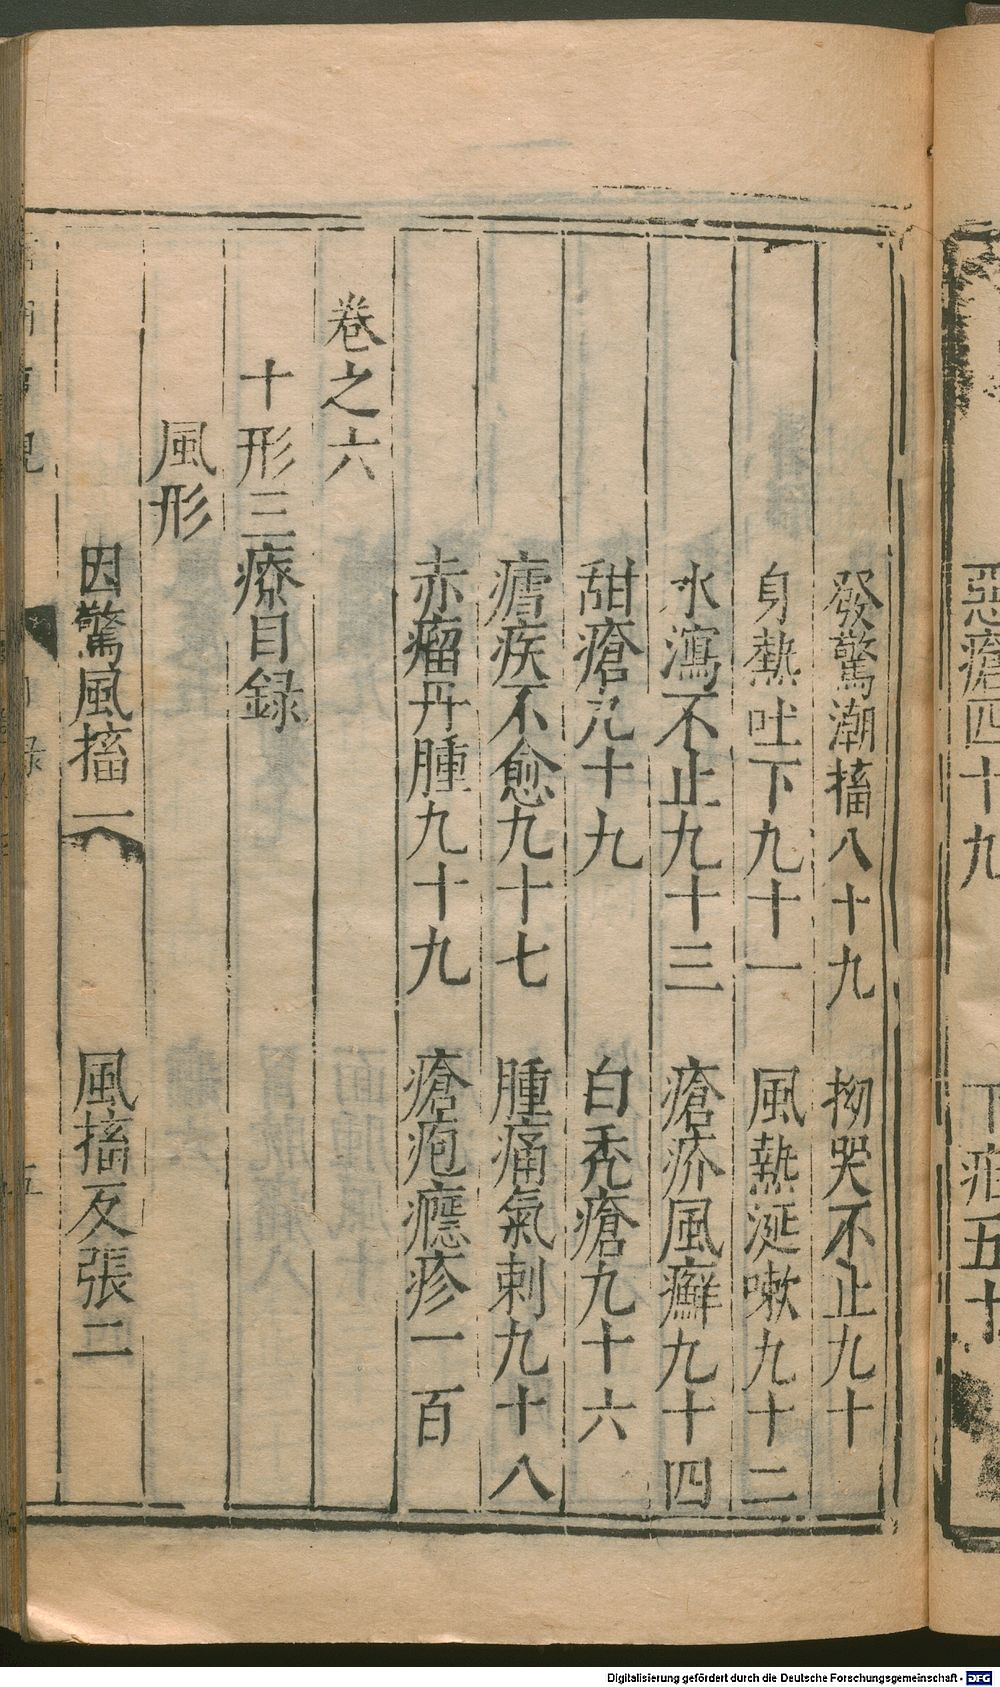 惡瘡四十九　下疳五十
發驚潮搐八十九　拗哭不止九十
身熱吐下九十一　風熱涎嗽九十二
水瀉不止九十三　瘡疥風癬九十四
甜瘡九十九　白禿瘡九十六
瘧疾不愈九十七　腫痛氣刺九十八
赤瘤丹腫九十九　瘡疱癮疹一百
卷之六
十形三療目録
風形
因驚風搐一　風搐反張二
Digitalisierung gefördert durch die Deutsche Forschungsgemeinschaft - DFG